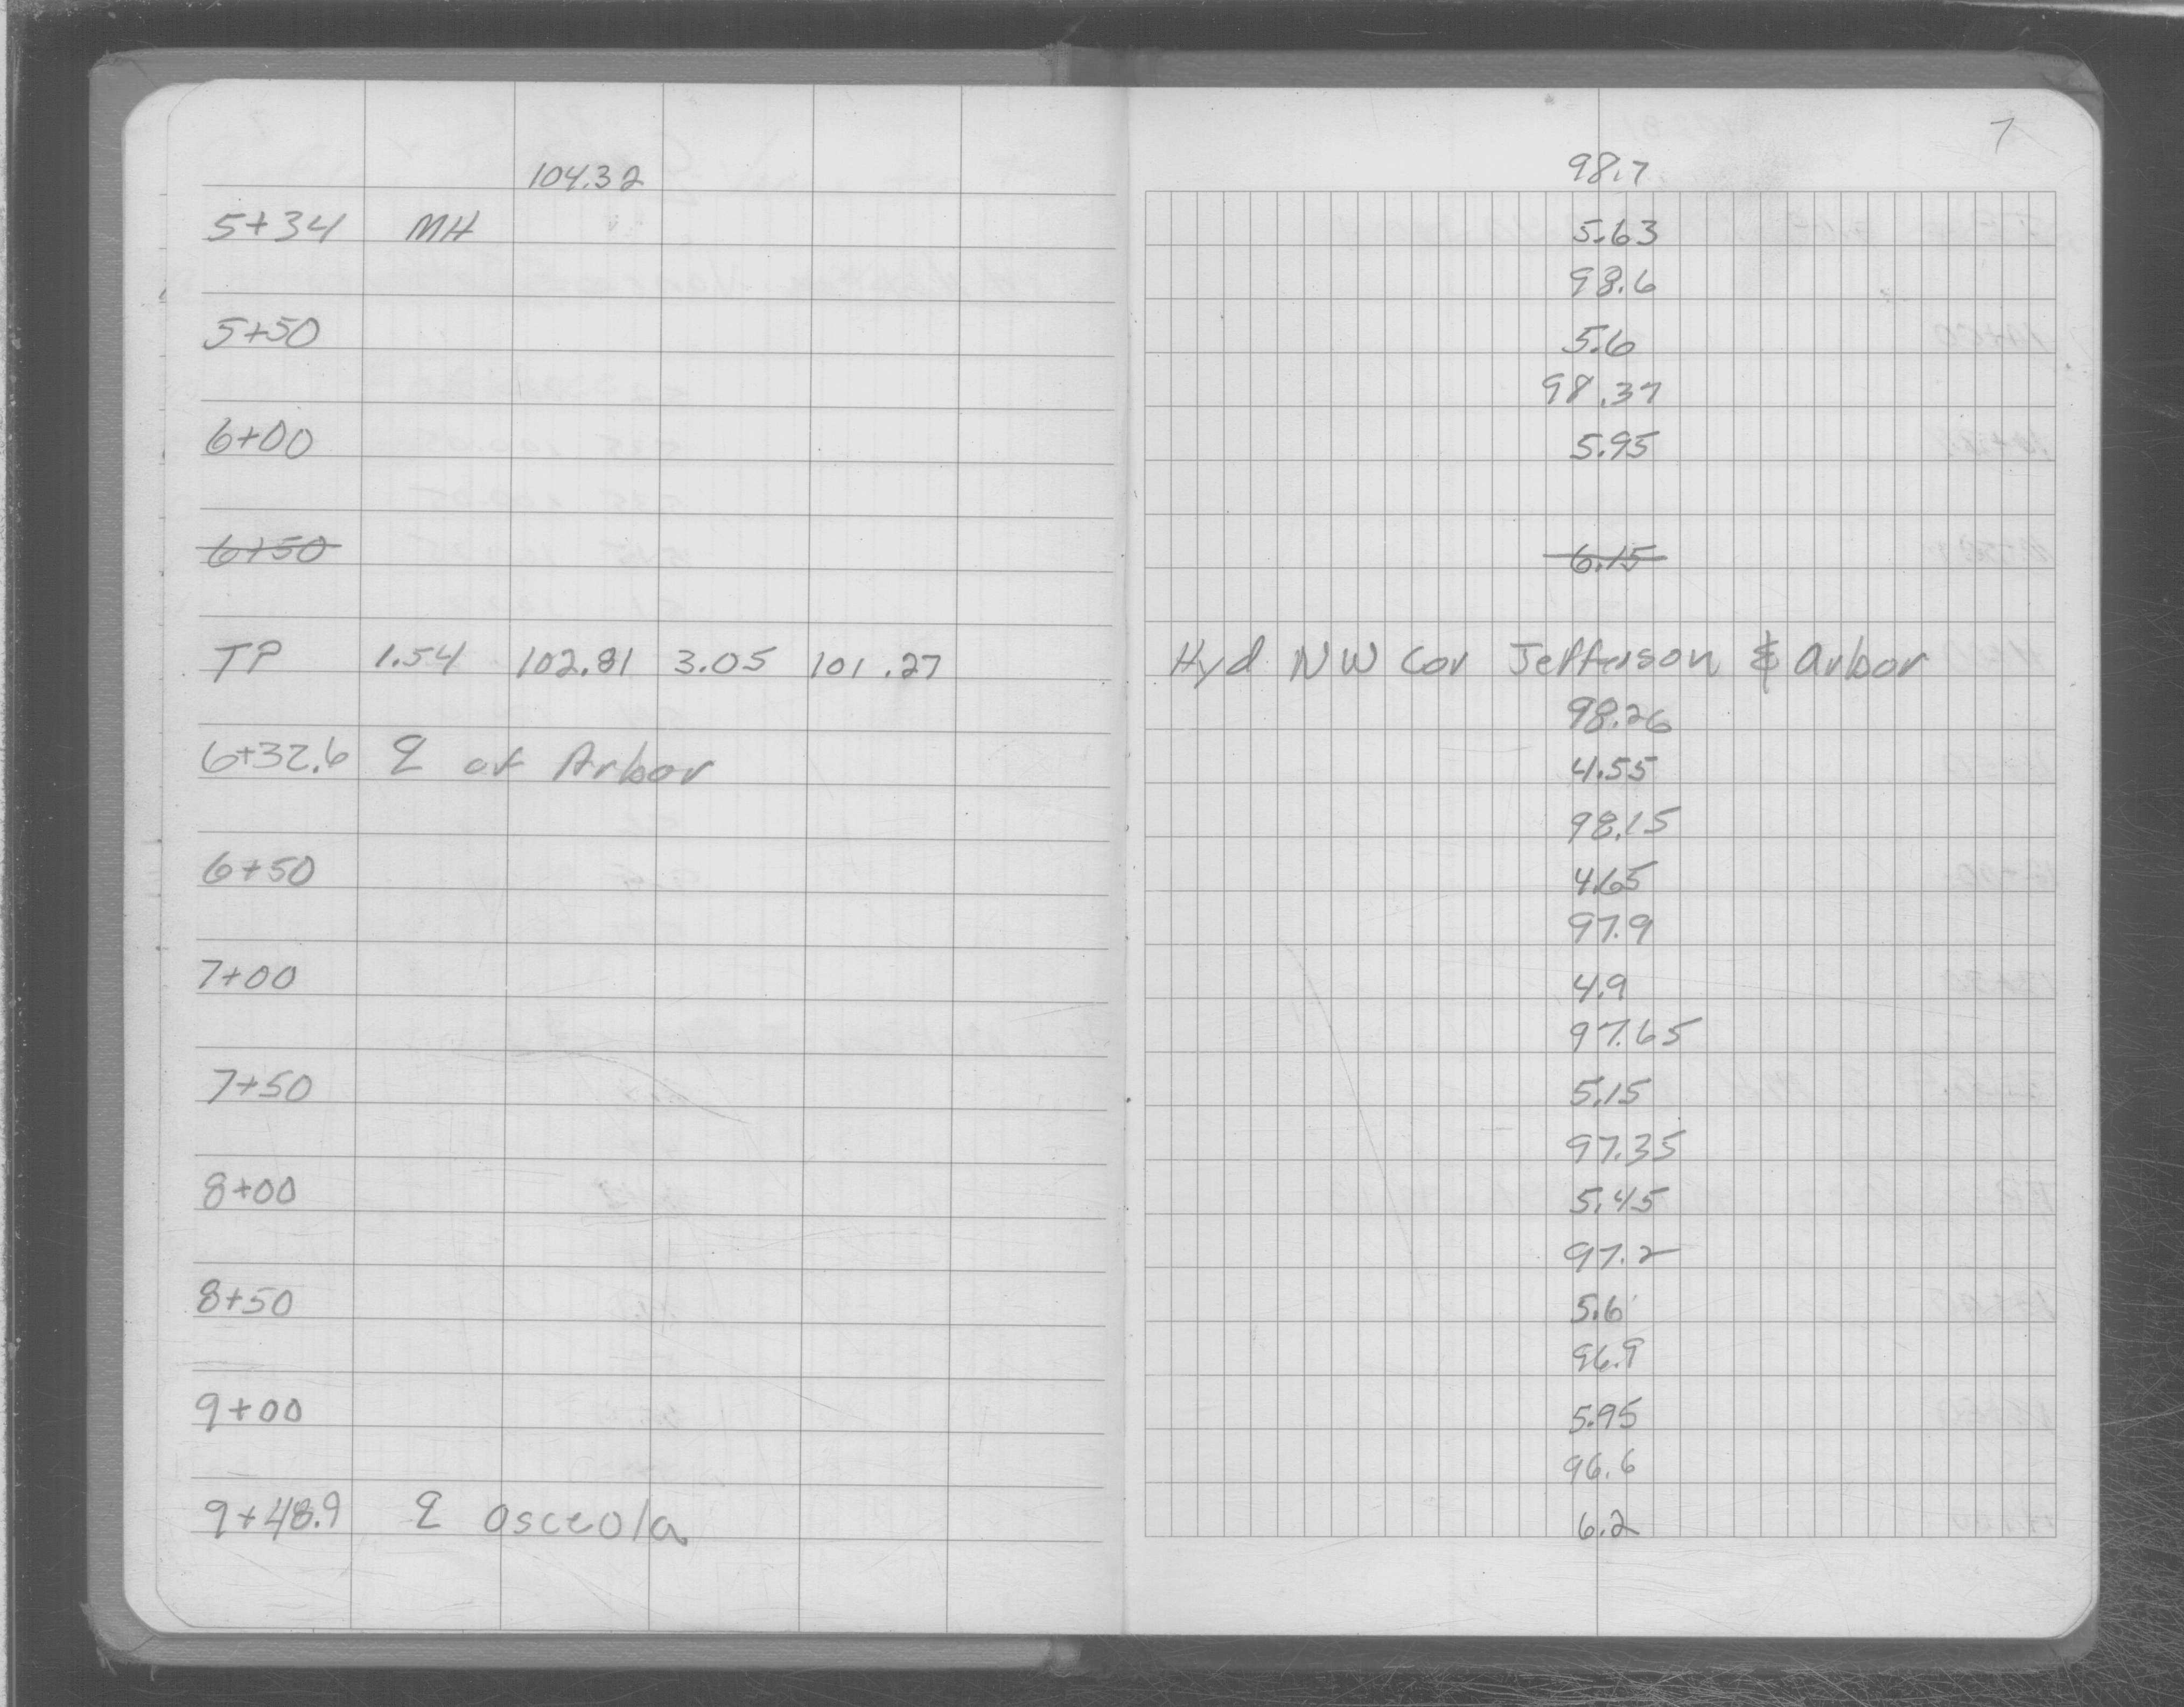 7
104.32 98.7
5+34 MH 5.63
98.6
5+50 5.6
98.37
6+00 5.95
6+50 6.15
TP 1.54 102.81 3.05 101.27 Hyd NW Cor Jefferson & Arbor
98.26
6+32.6 ℄ of Arbor 4.55
98.15
6+50 4.65
97.9
7+00 4.9
97.65
7+50 5.15
97.35
8+00 5.45
97.2
8+50 5.6
96.9
9+00 5.95
96.6
9+48.9 ℄ Osceola 6.2